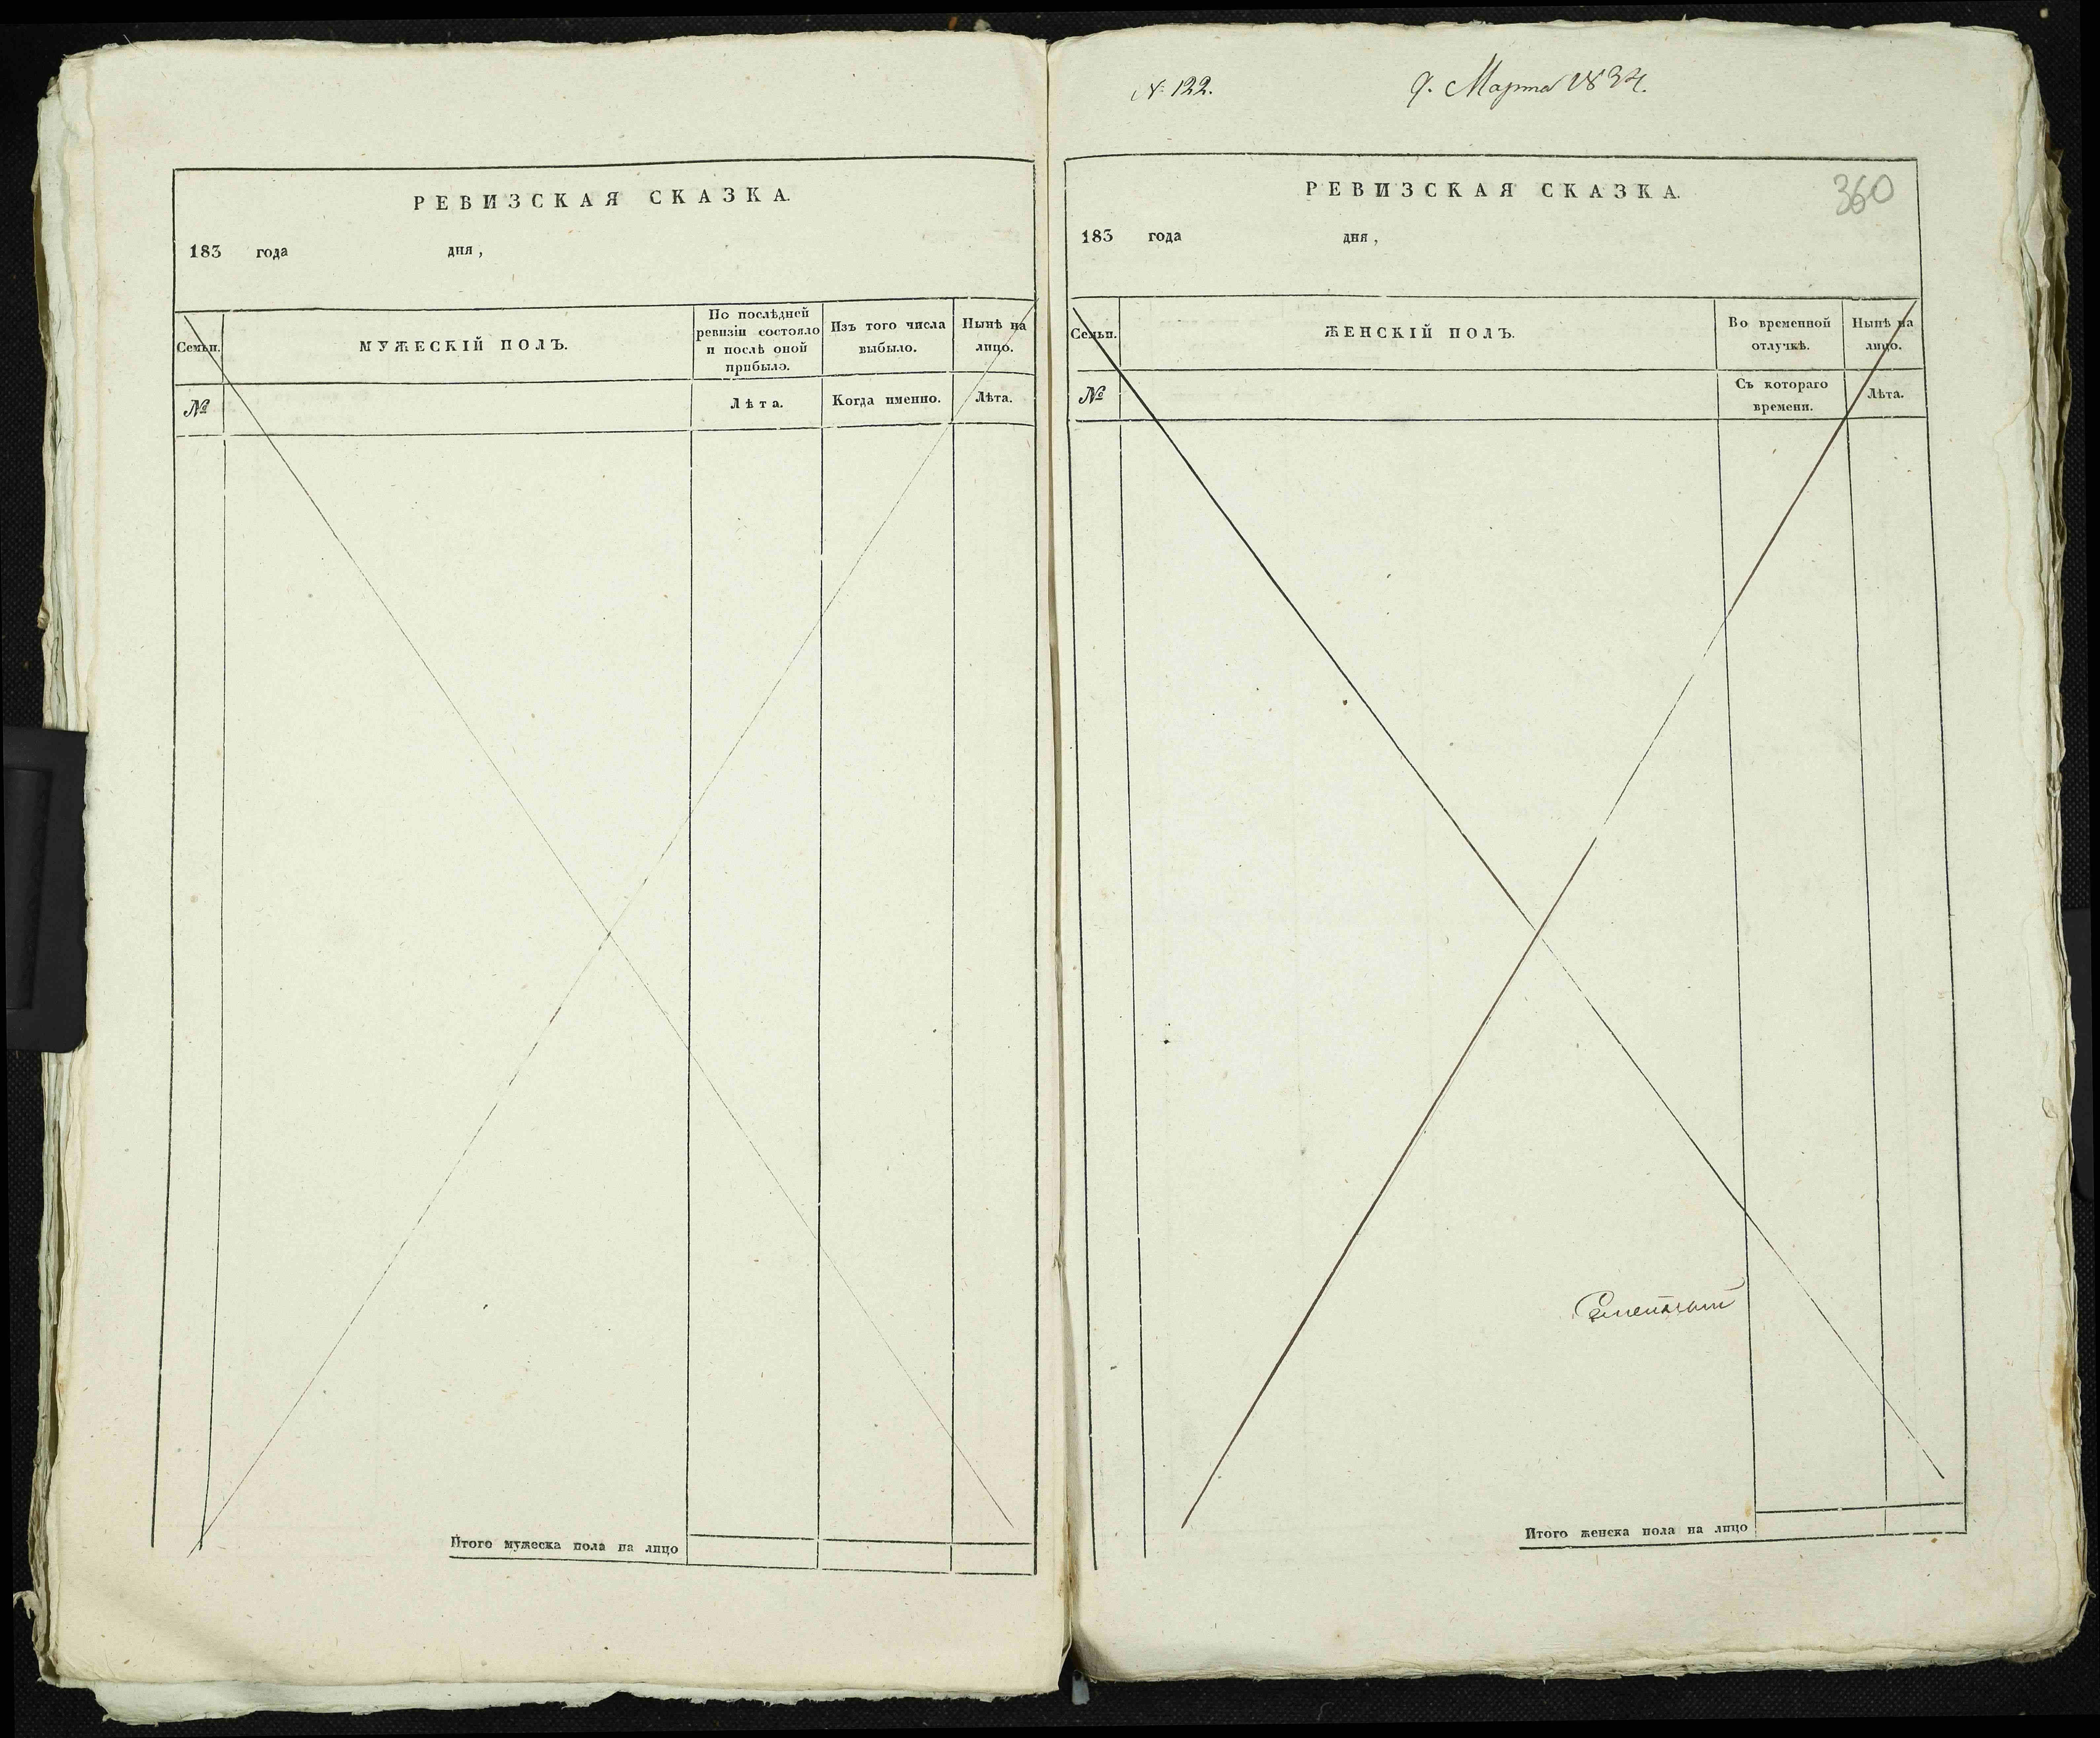 РЕВИЗСКАЯ СКАЗКА.
183 года дня,
Семьи.
МУЖЕСКІЙ ПОЛЪ.
По послѣдней ревизіи состояло и послѣ оной прибыло.
Изъ того числа выбыло.
Нынѣ на лицо.
№
Лѣта.
Когда именно.
Лѣта.
Итого мужеска пола на лицо
№ 122.
9. Марта 1834.
360
РЕВИЗСКАЯ СКАЗКА.
183 года дня,
Семьи.
ЖЕНСКІЙ ПОЛЪ.
Во временной отлучкѣ.
Нынѣ на лицо.
№
Съ котораго времени.
Лѣта.
Итого женска пола на лицо